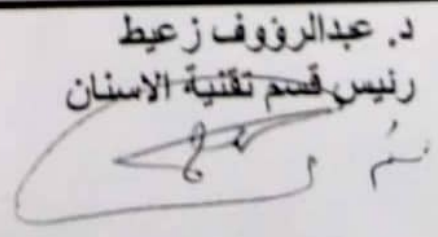 د. عبدالرؤوف زعيط
رئيس قسم تقنية الاسنان